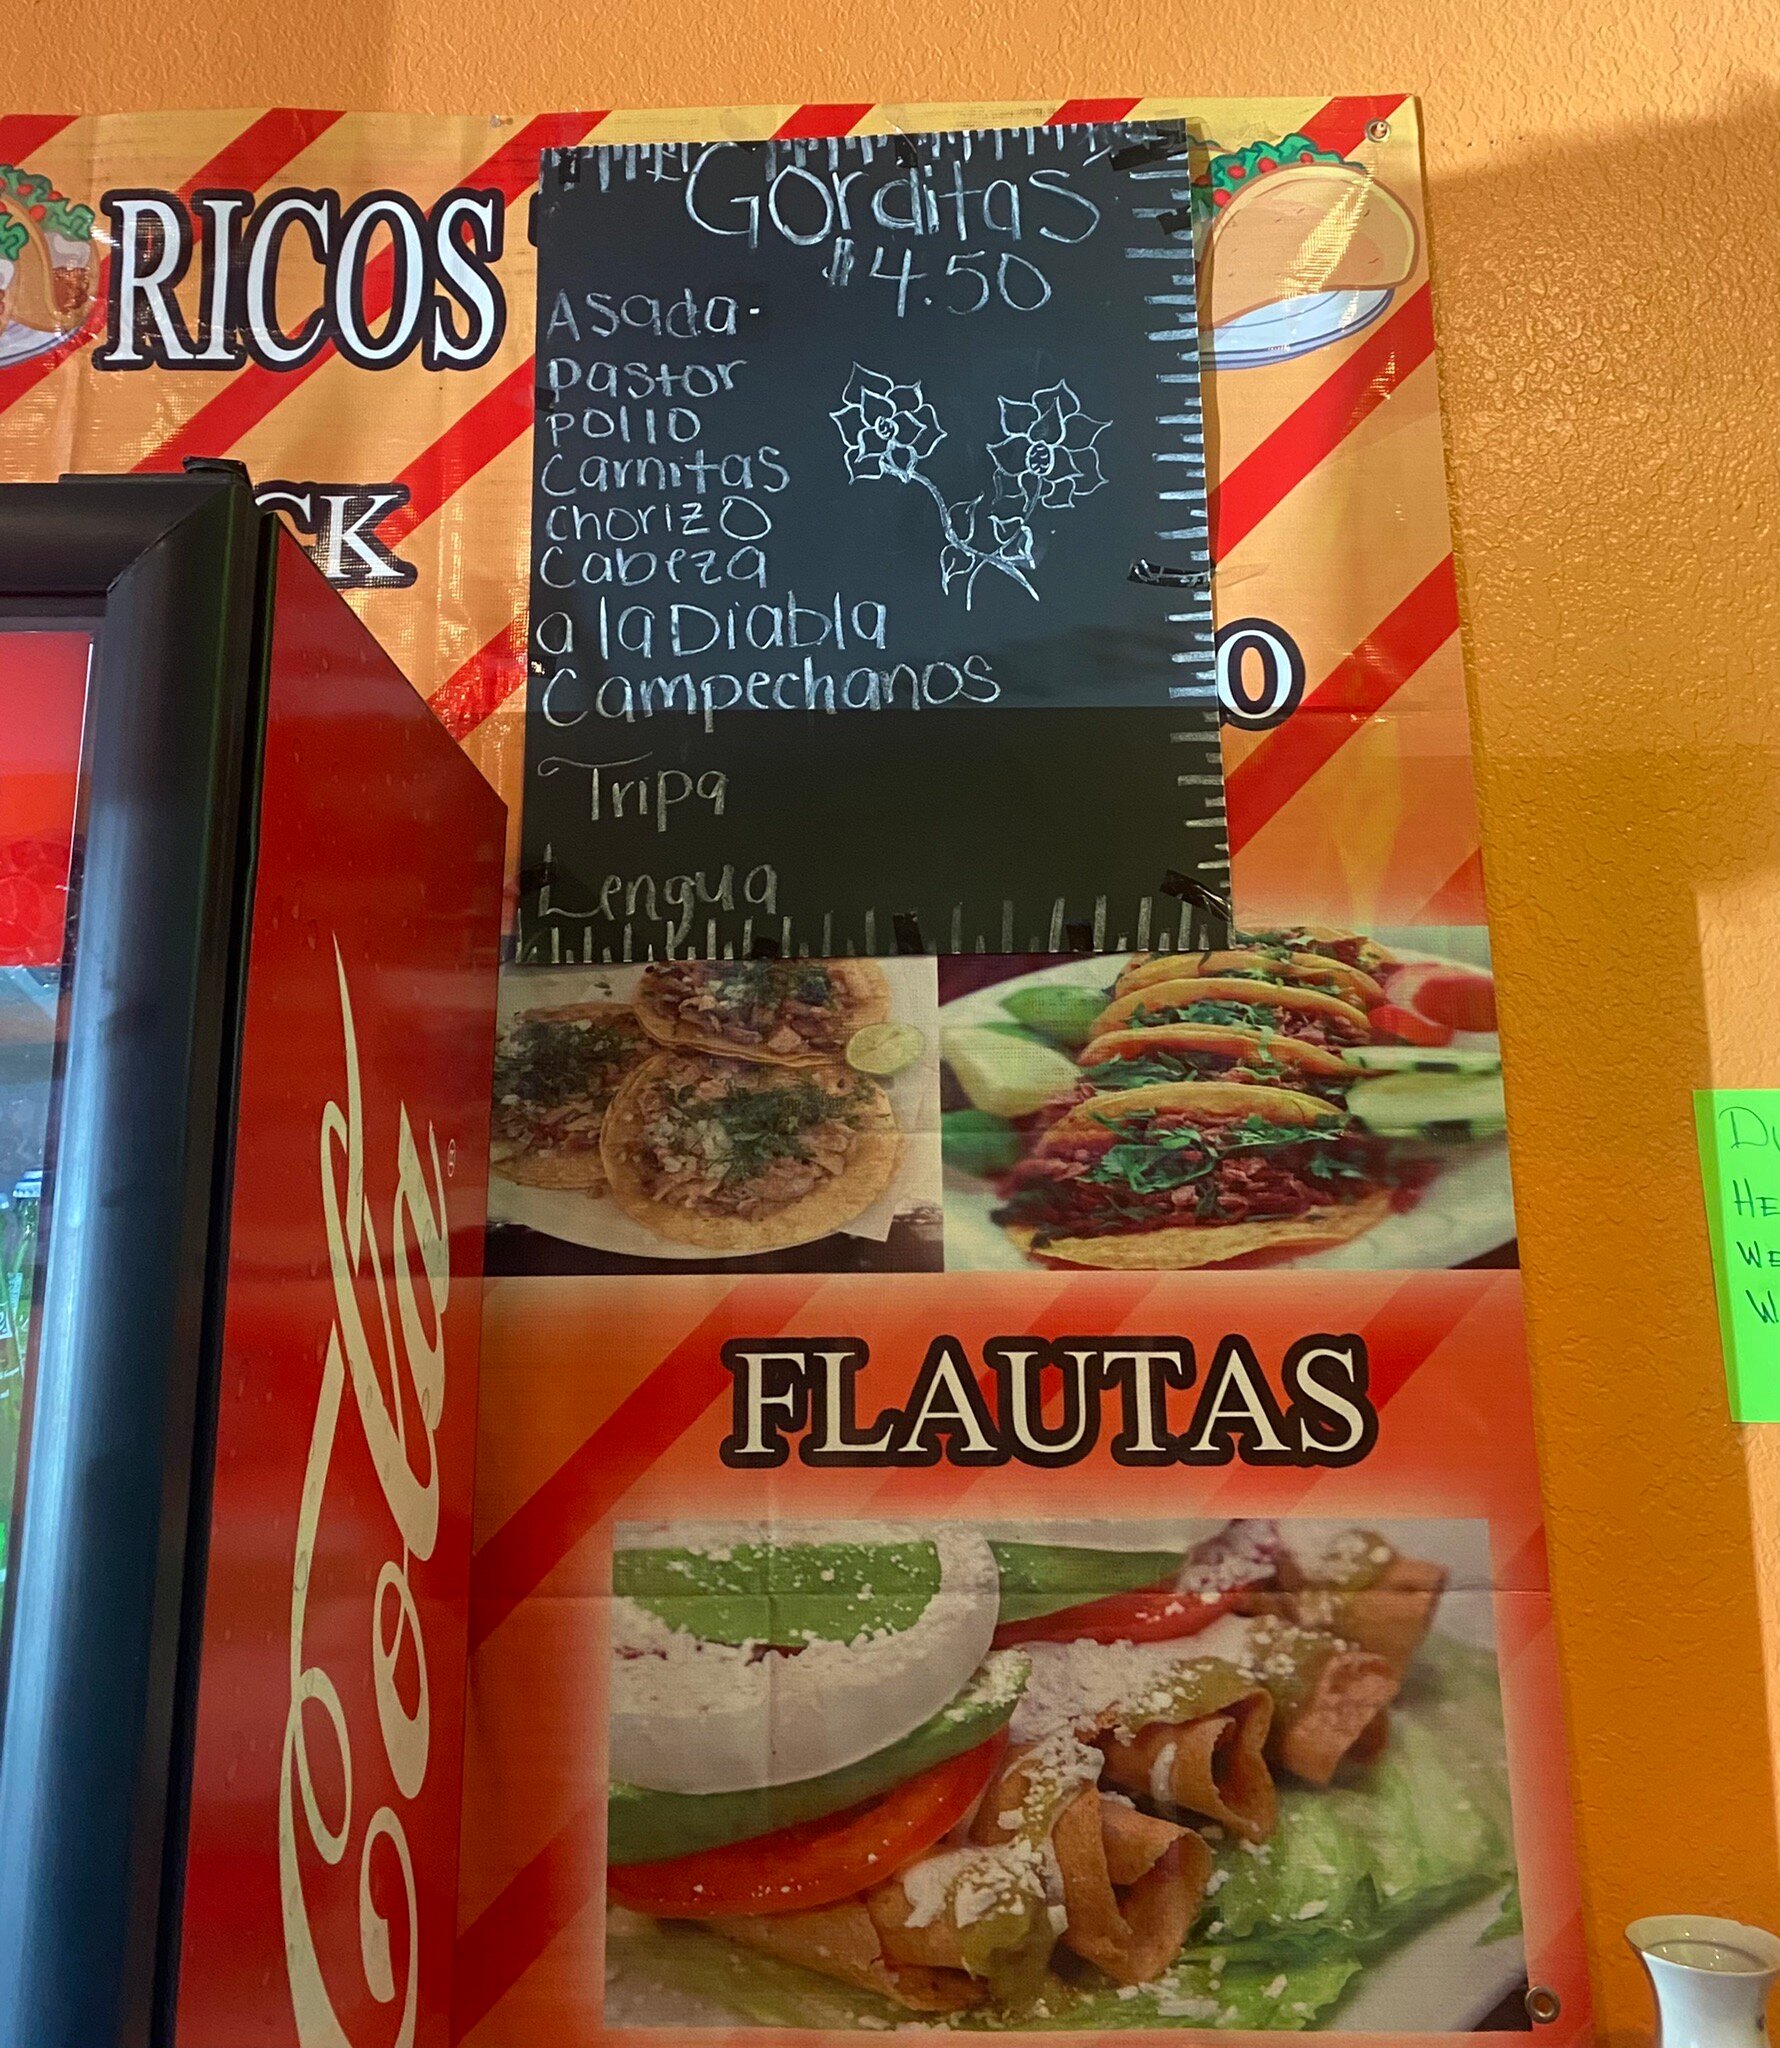 Gorditas
$4.50
Asada.
Pastor
Pollo
Carnitas
Chorizo
Cabeza
a la Diabla
Campechanos
Tripa
Lengua
RICOS
FLAUTAS
Cola